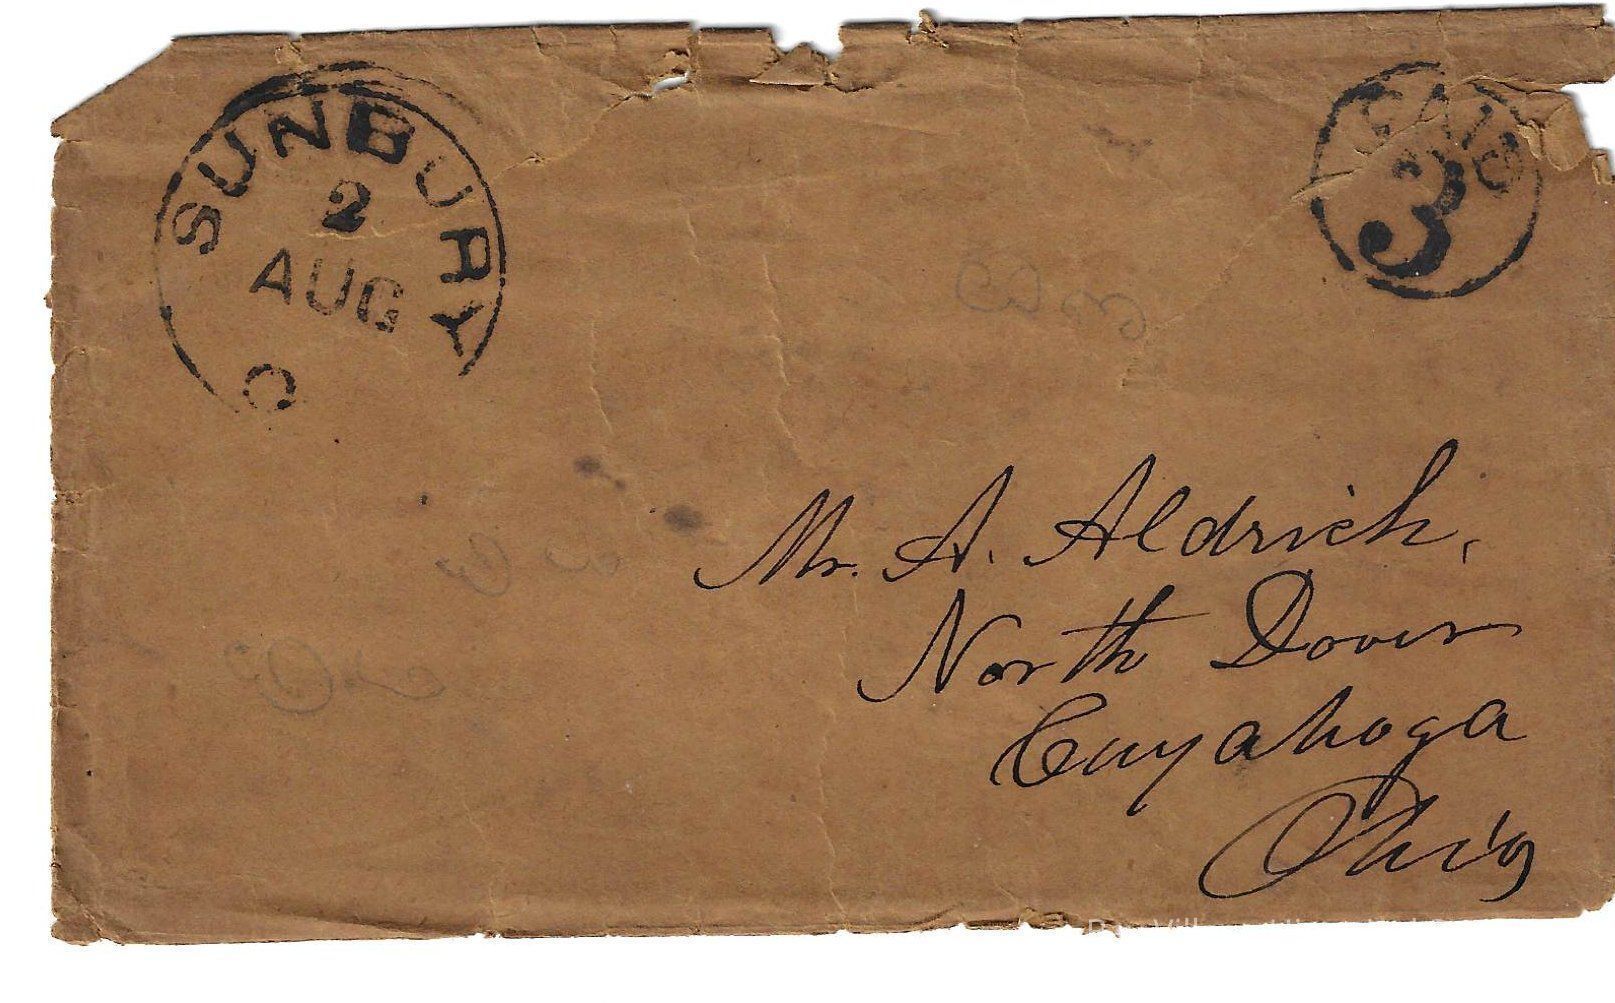 SUNBURY
2
AUG
O
PAID
3
Mr. A. Aldrich,
North Dover
Cuyahoga
Ohio